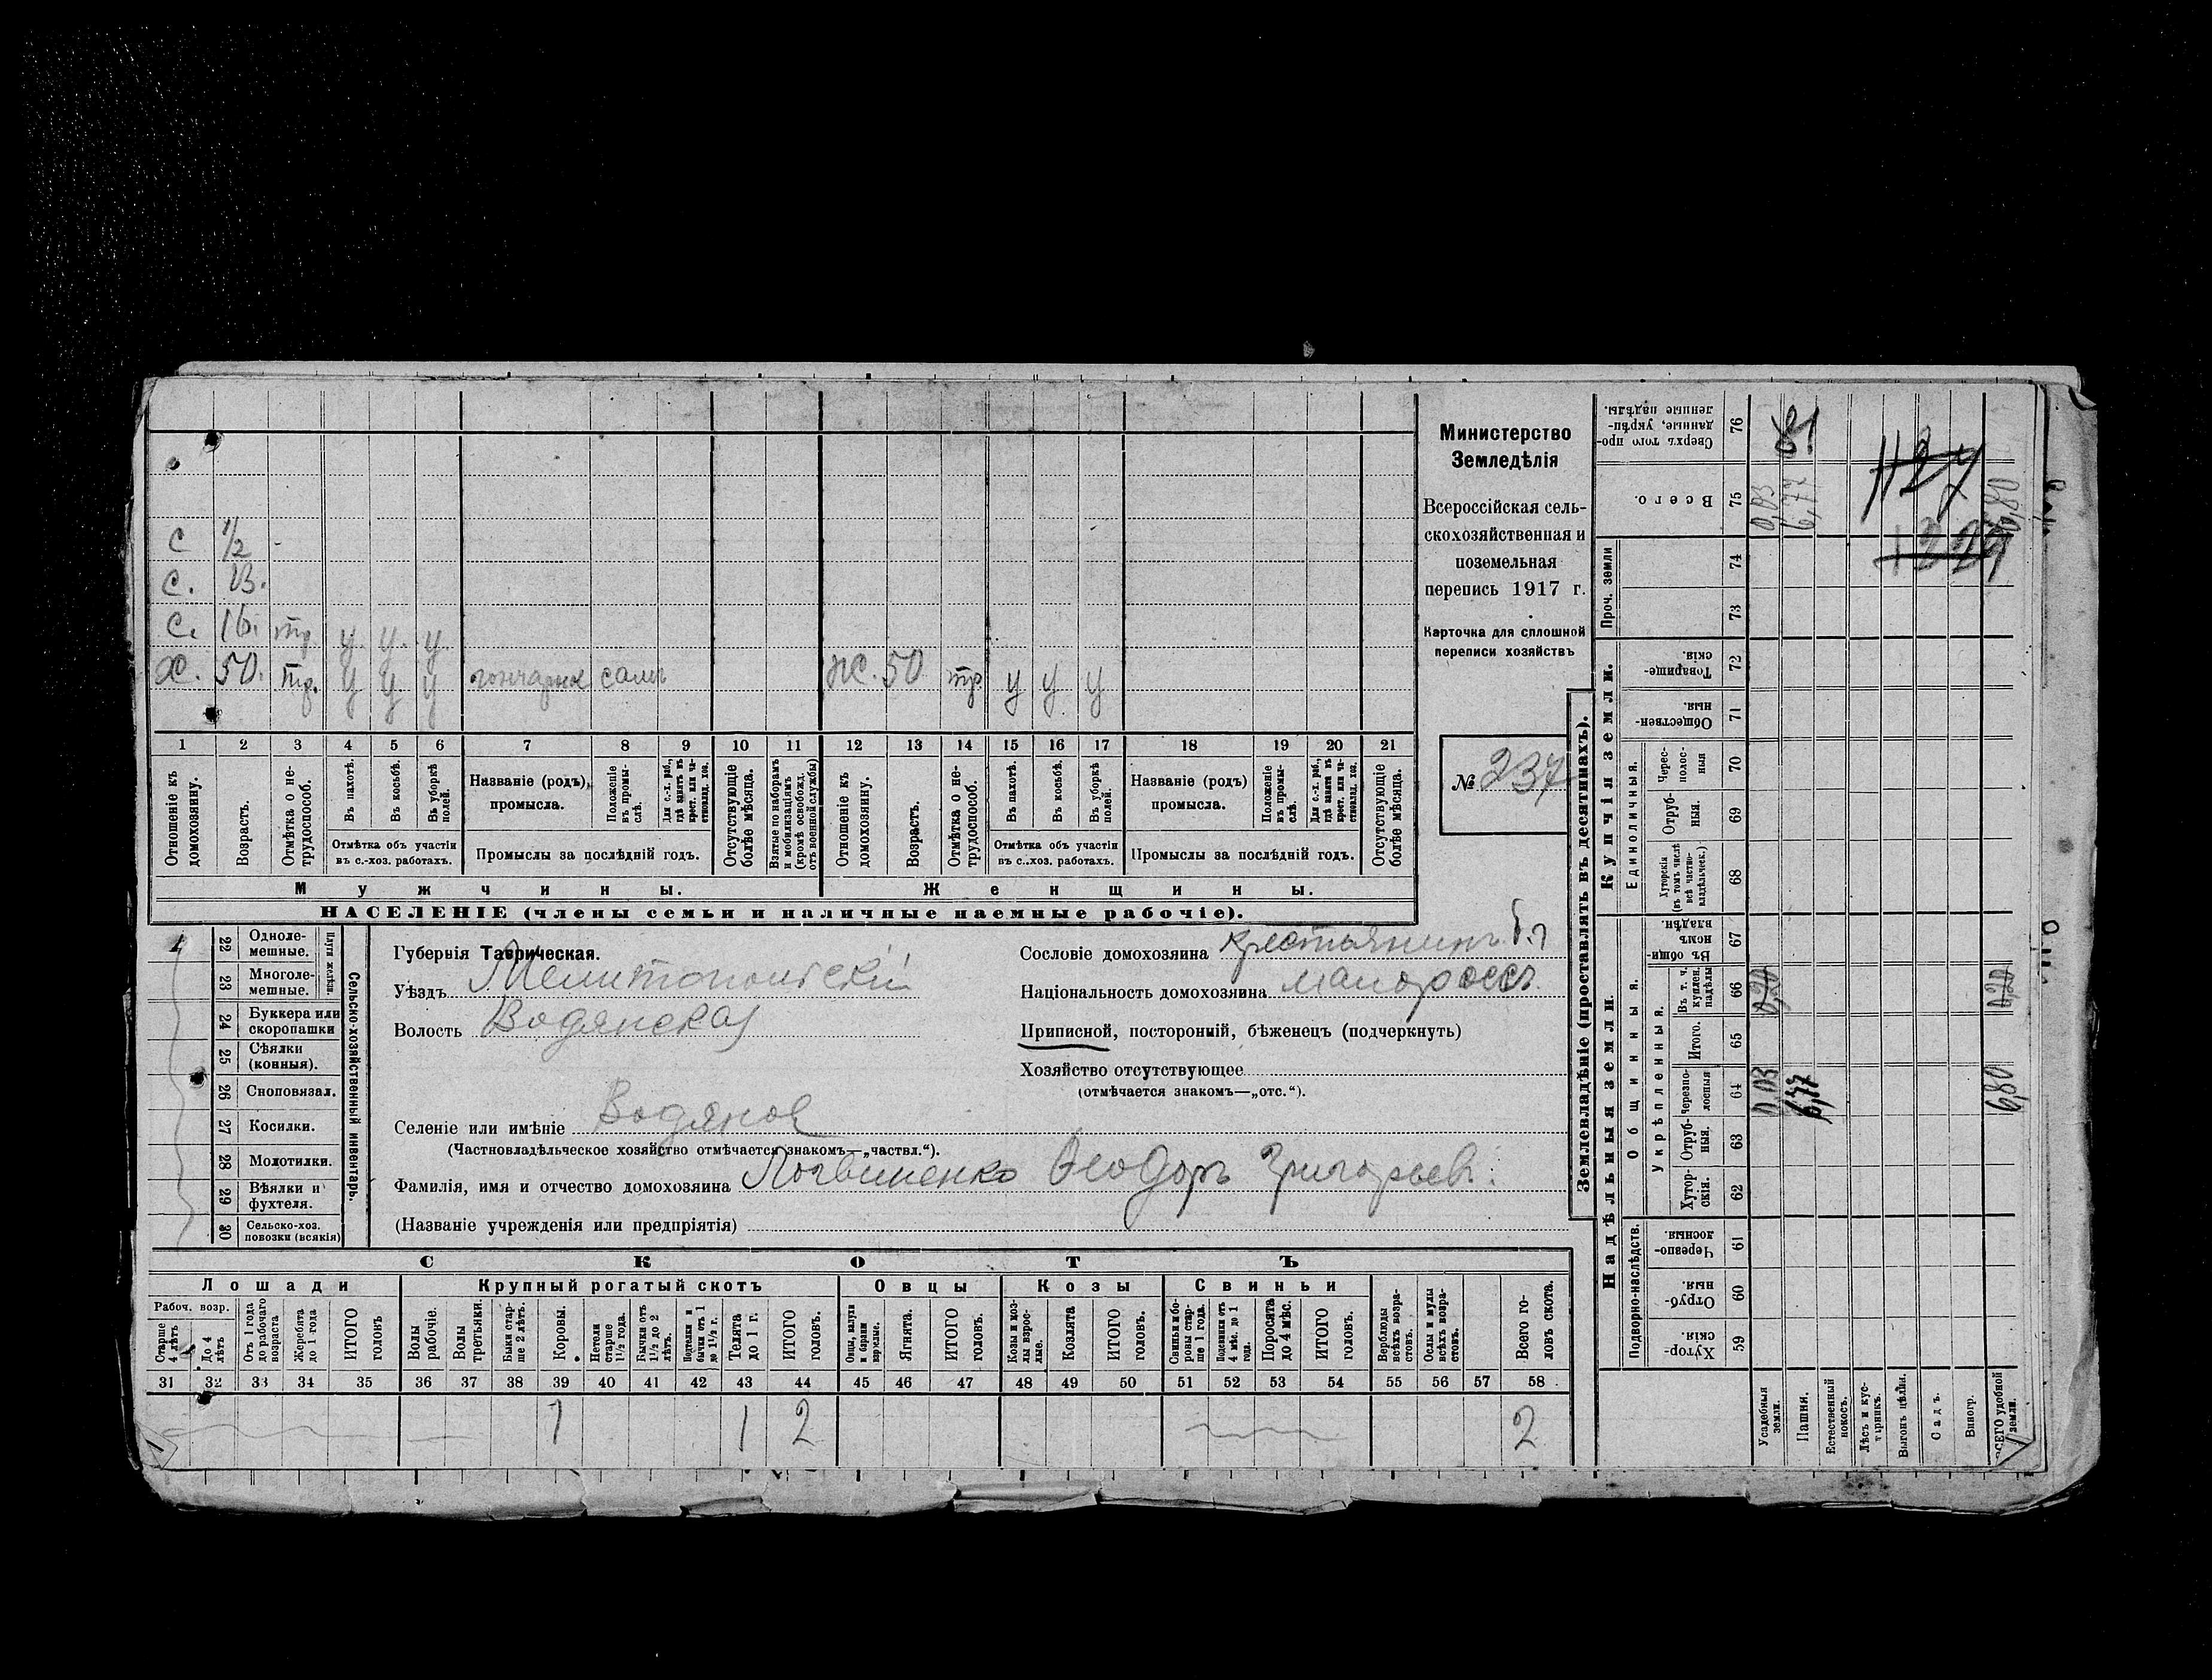 С 1/2 -
С. 13.
С. 16. тр. у. у. у.
Х. 50. тр. у у у гончарное самъ Ж. 50 тр. у у у
1 2 3 4 5 6 7 8 9 10 11 12 13 14 15 16 17 18 19 20 21
Отношеніе къ домохозяину.
Возрастъ.
Отмѣтка о нетрудоспособ.
Въ пахотѣ.
Въ косьбѣ.
Въ уборкѣ полей.
Отмѣтка объ участіи
въ с.-хоз. работахъ.
Названіе (родъ),
промысла.
Положеніе въ промыслѣ.
Для с.-х. раб., гдѣ занятъ въ крест. или частновлад. хоз.
Промыслы за послѣдній годъ.
Отсутствующіе болѣе мѣсяца.
Взятые по наборамъ и мобилизаціямъ (кромѣ освобожд. отъ военной службы)
Отношеніе къ домохозяину.
Возрастъ.
Отмѣтка о нетрудоспособ.
Въ пахотѣ.
Въ косьбѣ.
Въ уборкѣ полей.
Отмѣтка объ участіи
въ с..хоз. работахъ.
Названіе (родъ)
промысла.
Положеніе въ промыслѣ.
Для с.-х. раб., гдѣ занятъ въ крест. или частновлад. хоз.
Промыслы за послѣдній годъ.
Отсутствующіе болѣе мѣсяца.
Мужчины. Женщины.
НАСЕЛЕНІЕ (члены семьи и наличные наемные рабочіе).
Министерство
Земледѣлія
Всероссійская сель-
скохозяйственная и
поземельная
перепись 1917 г.
Карточка для сплошной
переписи хозяйствъ
№ 237
22 Одноле-
мешные.
23 Многоле-
мешные.
Плуги желѣзн.
24 Буккера или
скоропашки
25 Сѣялки
(конныя).
26 Сноповязал.
27 Косилки.
28 Молотилки.
29 Вѣялки и
фухтеля.
30 Сельско-хоз.
повозки (всякія)
Сельско-хозяйственный инвентарь.
Губернія Таврическая.
Уѣздъ Мелитопольскій
Волость Водянская
Селеніе или имѣніе Водяное
(Частновладѣльческое хозяйство отмѣчается знакомъ—„частвл.“).
Фамилія, имя и отчество домохозяина Логвиненко Ѳеодоръ Григорьев.
(Названіе учрежденія или предпріятія)
Сословіе домохозяина крестьянинъ
Національность домохозяина малоросс.
Приписной, посторонній, бѣженецъ (подчеркнуть)
Хозяйство отсутствующее
(отмѣчается знакомъ—„отс.“).
СКОТЪ
Лошади Крупный рогатый скотъ Овцы Козы Свиньи
Рабоч. возр.
Старше 4 лѣтъ
До 4 лѣтъ
Отъ 1 года до рабочаго возраста
Жеребята до 1 года
ИТОГО головъ
Волы рабочіе.
Волы третьяки.
Быки старше 2 лѣтъ.
Коровы.
Нетели старше 1 1/2 года.
Бычки отъ 1 1/2 до 2 лѣтъ.
Подтелки и бычки отъ 1 до 1 1/2 г.
Телята до 1 г.
ИТОГО головъ.
Овцы, валухи и бараны взрослые.
Ягнята.
ИТОГО головъ.
Козы и козлы взрослые.
Козлята
ИТОГО головъ.
Свиньи и боровы старше 1 года.
Подсвинки отъ 4 мѣс. до 1 года.
Поросята до 4 мѣс.
ИТОГО головъ.
Верблюды всѣхъ возрастовъ.
Ослы и мулы всѣхъ возрастовъ.
Всего головъ скота.
31 32 33 34 35 36 37 38 39 40 41 42 43 44 45 46 47 48 49 50 51 52 53 54 55 56 57 58
1 1 2 2
Землевладѣніе (проставлять въ десятинахъ).
Надѣльныя земли. Купчія земли. Проч. земли
Подворно-наслѣдств.
Общинныя.
Укрѣпленныя.
Единоличныя.
Хуторскія. 59
Отрубныя. 60
Черезполосныя. 61
Хуторскія. 62
Отрубныя. 63
Черезполосныя 64
Итого. 65
Въ т. ч. куплен. надѣлы 66
Въ общинномъ владѣн. 67
Хуторскія (въ томъ числѣ всѣ частновладѣльческ.) 68
Отрубныя. 69
Чересполосныя 70
Общественныя 71
Товарищескія. 72
73
74
Всего. 75
Сверхъ того проданные, укрѣпленные надѣлы. 76
Усадебныя земли. 0,03 0,20 0,03
Пашня. 6,77 6,77
Естественный покосъ.
Лѣсъ и кустарникъ.
Выгонъ цѣлин.
Садъ.
Виногр.
ВСЕГО удобной земли. 6,80 0,20 6,80